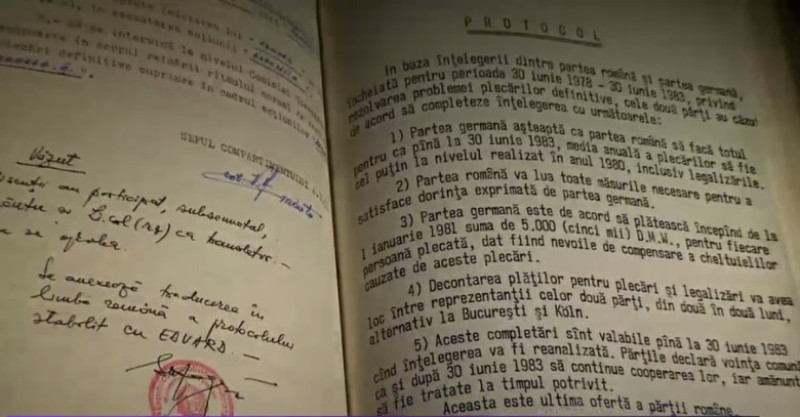 în executarea
,- că se intervină la nivelul Comisiei
în scopul reluării ritmului normal de
definitive cuprinse în cadrul acțiunilor
ȘEFUL COMPARTIMENTULUI
Văzut
au participat, subsemnatul,
ca translator. -
se aprobe.
Se anexează traducerea în
limba română a protocolului
stabilit cu EDUARD. -
PROTOCOL
In baza înțelegerii dintre partea română și partea germană,
încheiată pentru perioada 30 iunie 1978 - 30 iunie 1983, privind
rezolvarea problemei plecărilor definitive, cele două părți au căzut
de acord să completeze înțelegerea cu următoarele:
1) Partea germană așteaptă ca partea română să facă totul
pentru ca pînă la 30 iunie 1983, media anuală a plecărilor să fie
cel puțin la nivelul realizat în anul 1980, inclusiv legalizările.
2) Partea română va lua toate măsurile necesare pentru a
satisface dorința exprimată de partea germană.
3) Partea germană este de acord să plătească începînd de la
1 ianuarie 1981 suma de 5.000 (cinci mii) D.M.W., pentru fiecare
persoană plecată, dat fiind nevoile de compensare a cheltuielilor
cauzate de aceste plecări.
4) Decontarea plăților pentru plecări și legalizări va avea
loc între reprezentanții celor două părți, din două în două luni,
alternativ la București și Köln.
5) Aceste completări sînt valabile pînă la 30 iunie 1983
cînd înțelegerea va fi reanalizată. Părțile declară voința comună
ca și după 30 iunie 1983 să continue cooperarea lor, iar amănunt
să fie tratate la timpul potrivit.
Aceasta este ultima ofertă a părții române